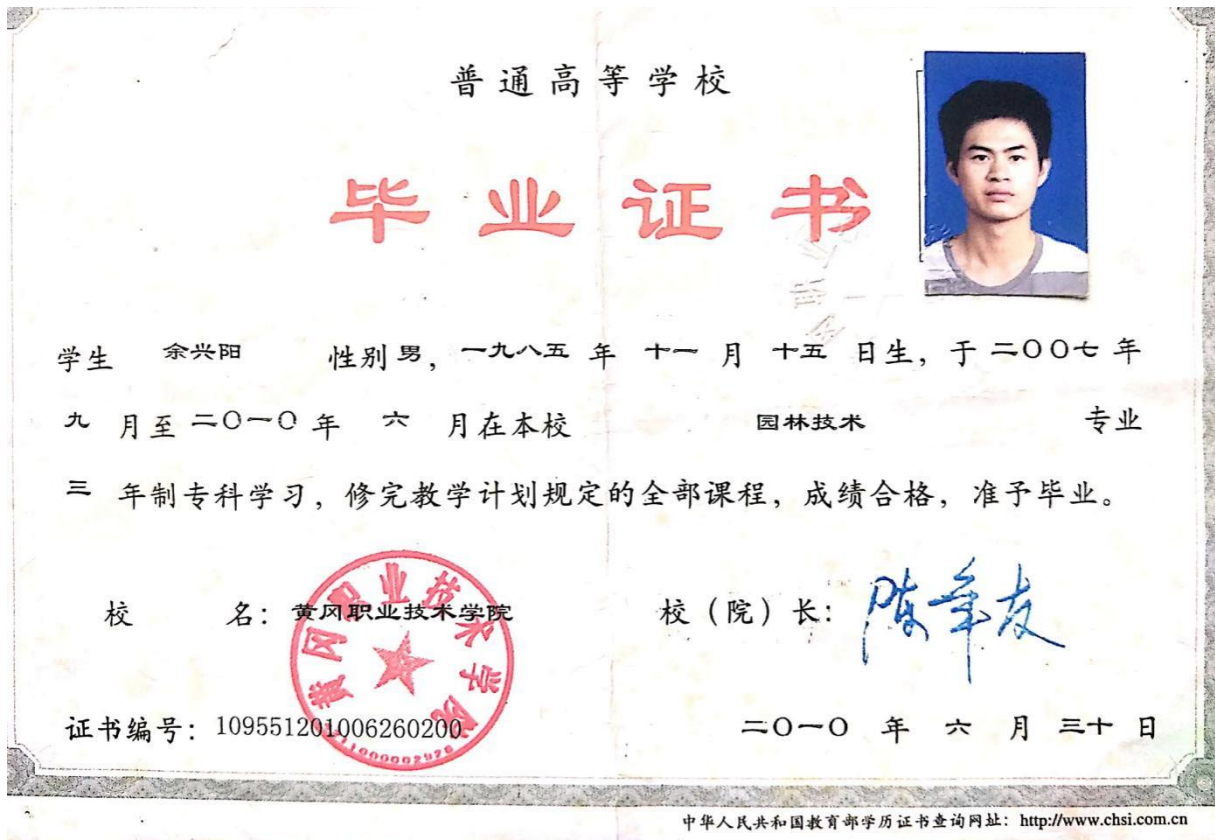 普通高等学校
毕业证书
学生 余兴阳 性别男，一九八五年 十一月 十五 日生，于二〇〇七年
九 月至二〇一〇年 六 月在本校 园林技术 专业
三 年制专科学习，修完教学计划规定的全部课程，成绩合格，准予毕业。
校 名：黄冈职业技术学院 校（院）长：陈年友
黄冈职业技术学院
证书编号：109551201006260200 二〇一〇 年 六 月 三十 日
中华人民共和国教育部学历证书查询网址：http://www.chsi.com.cn